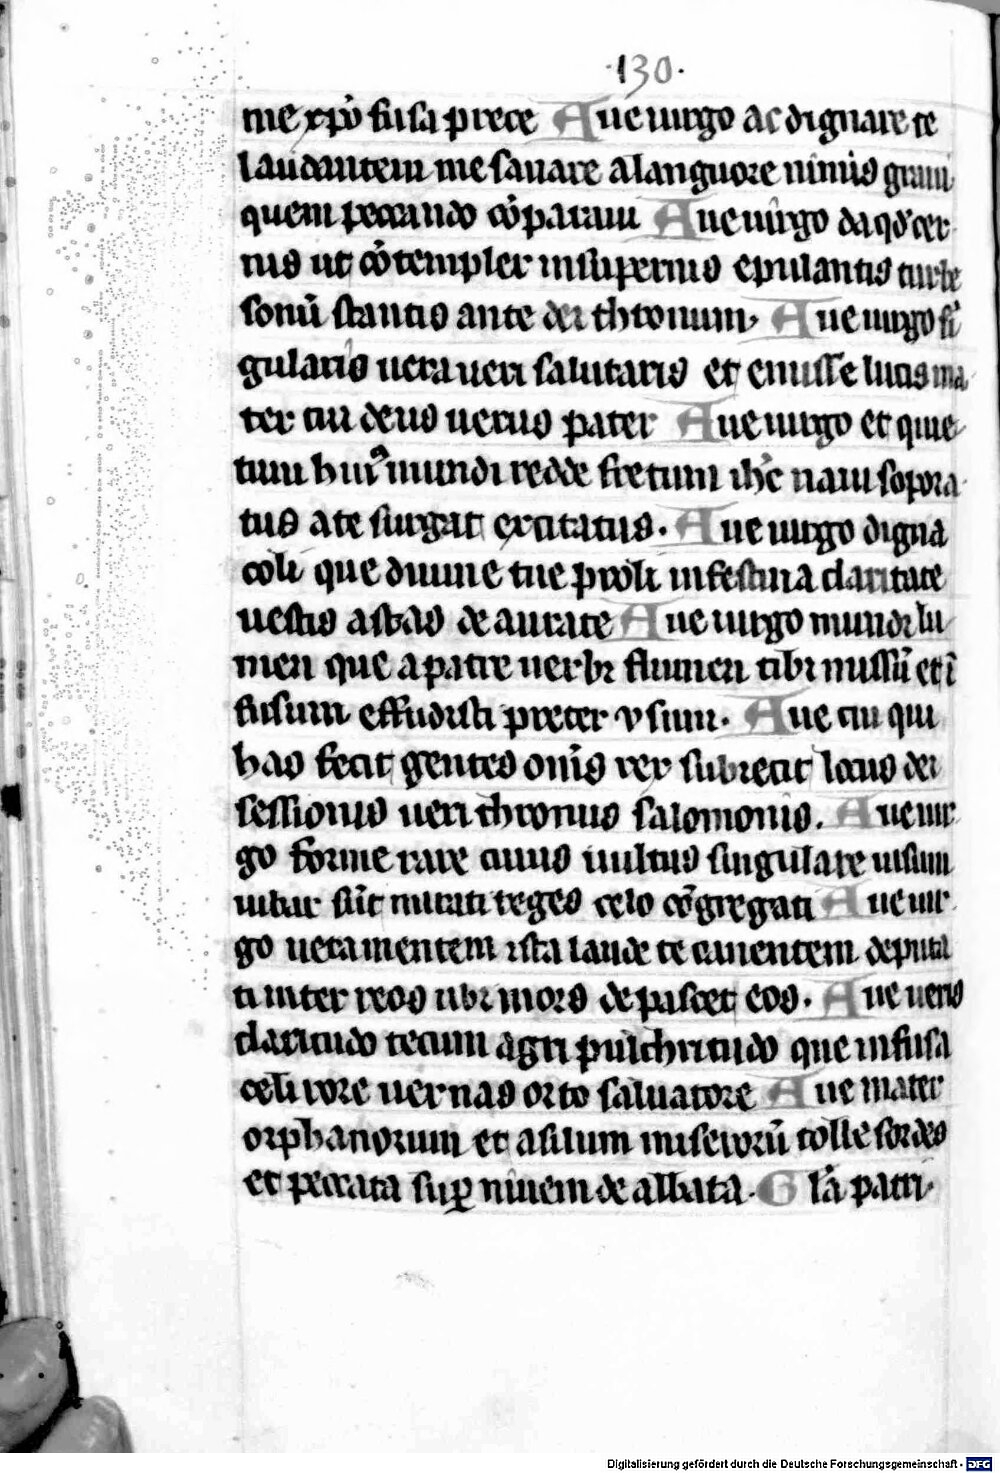 ·130·
me xp̄o fusa prece Aue uirgo ac dignare te
laudantem me sanare a languore nimis graui
quem peccando cōparaui Aue uirgo da qd̄ cer
nis ut cōtempler in supernis epulantis turbe
sonū stantis ante dei thronum Aue uirgo sī
gularis uera ueri salutaris et emisse lucis ma
ter cui deus uerus pater Aue uirgo et quie
tum huiꝰ mundi redde fretum ihc̄ nam sopora
tus a te surgat excitatus. Aue uirgo digna
coli que diuine tue proli in festiua claritate
uestis astas de aurate Aue uirgo mundi lu
men que a patre uerbi flumen tibi missū et ī
fusum effudisti preter vsum. Aue cui qui
has fecit gentes om̄is rex subiecit locus dei
sessionis ueri thronus salomonis. Aue uir
go forme rare cuius uultus singulare uisum
iubar sūt mirati reges celo cōgregati Aue uir
go uera mentem ista laude te canentem deputa
ti inter reos ubi mors depascet eos. Aue ueris
claritudo tecum agri pulchritudo que infusa
celi rore uernas orto saluatore Aue mater
orphanorum et asilum miserorū tolle sordes
et peccata suꝑ niuem de albata. Gl̄a patri.
Digitalisierung gefördert durch die Deutsche Forschungsgemeinschaft - DFG